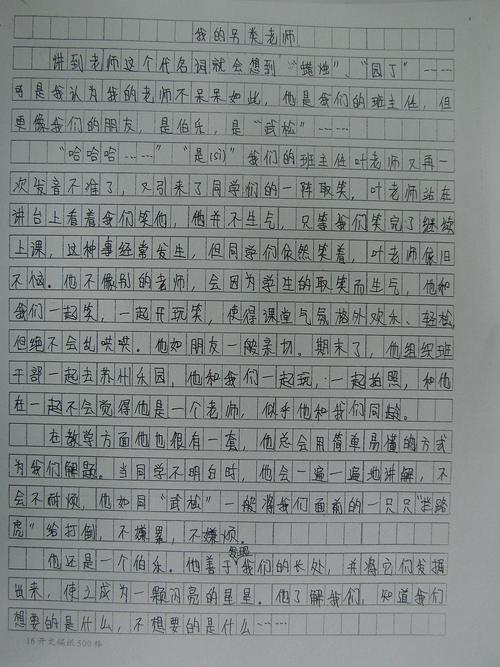 我的另类老师
讲到老师这个代名词就会想到“蜡烛”、“园丁”……
可是我认为我的老师不呆呆如此，他是我们的班主任，但
更像我们的朋友，是伯乐，是“武松”……
“哈哈哈……”“是(sì)”我们的班主任叶老师又再一
次发音不准了，又引来了同学们的一阵取笑，叶老师站在
讲台上看着我们笑他，他并不生气，只等我们笑完了继续
上课，这种事经常发生，但同学们依然笑着，叶老师依旧
不恼。他不像别的老师，会因为学生的取笑而生气，他和
我们一起笑，一起开玩笑，使得课堂气氛格外欢乐、轻松，
但绝不会乱哄哄。他如朋友一般亲切。期末了，他组织班
干部一起去苏州乐园，他和我们一起玩，一起拍照，和他
在一起不会觉得他是一个老师，似乎他和我们同龄。
在教学方面他也很有一套，他总会用简单易懂的方式
为我们解题。当同学不明白时，他会一遍一遍地讲解，不
会不耐烦，他如同“武松”一般将我们面前的一只只“拦路
虎”给打倒，不嫌累，不嫌烦。
他还是一个伯乐。他善于发现我们的长处，并将它们发掘
出来，使之成为一颗闪亮的星星。他了解我们，知道我们
想要的是什么，不想要的是什么……
16开文稿纸300格